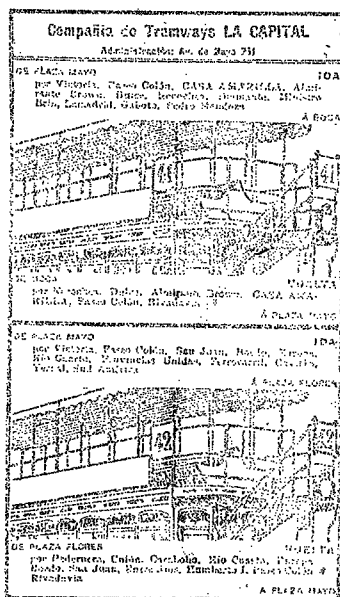 Compañía de Tramways LA CAPITAL
Administración Av. de Mayo 711
DE PLAZA MAYO IDA
por Victoria, Paseo Colón, CASA AMARILLA, Almi-
rante Brown, Necochea, Ministro
Brin, Lamadrid, Gaboto, Pedro Mendoza
A BOCA
41
41
DE BOCA VUELTA
por Necochea, Almirante Brown, CASA AMA-
RILLA, Paseo Colón, Rivadavia
A PLAZA MAYO
DE PLAZA MAYO IDA
por Victoria, Paseo Colón, San Juan,
Río Cuarto, Provincias Unidas, Ferrocarril,
Sud América
A PLAZA FLORES
42
42
DE PLAZA FLORES VUELTA
por Pedernera, Unión, Carabobo, Río Cuarto,
San Juan, Entre Ríos, Humberto I, Paseo Colón
Rivadavia
A PLAZA MAYO